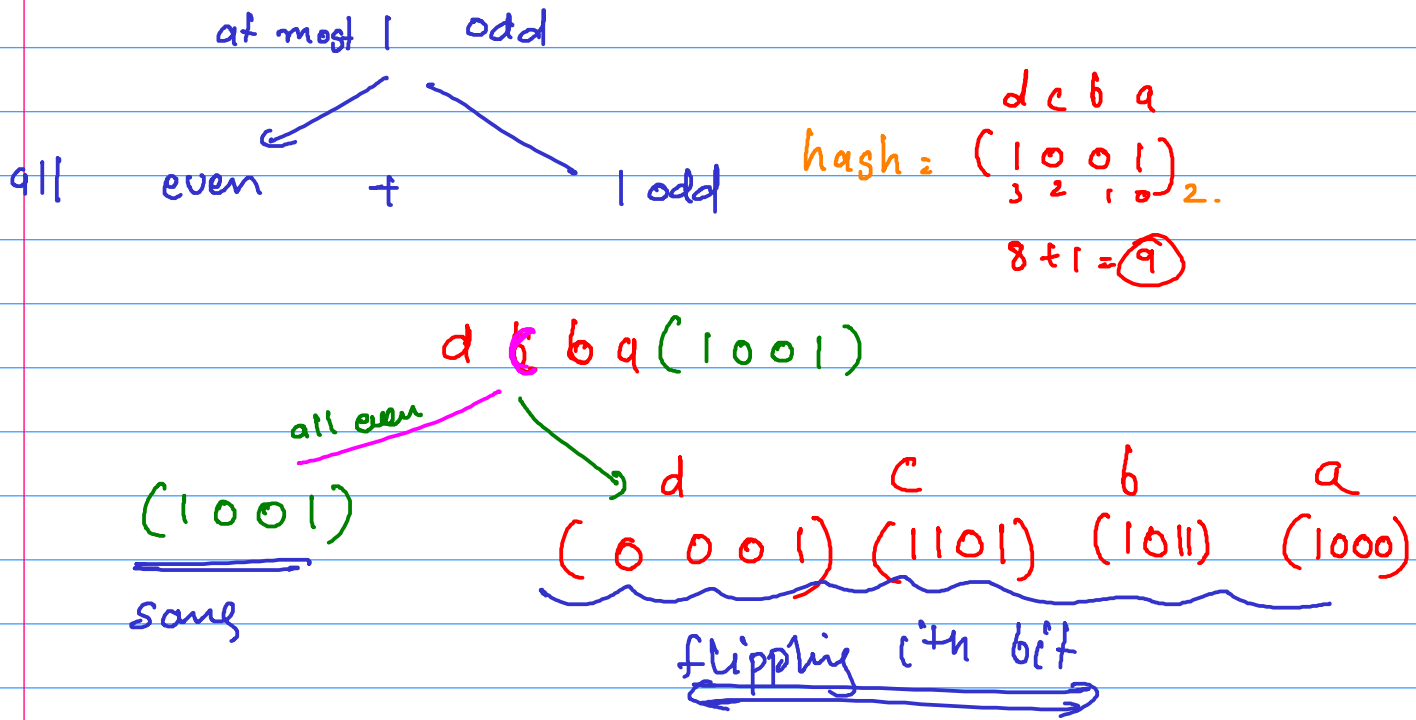 at most 1 odd
all even + 1 odd
d c b a
hash = (1 0 0 1)2.
3 2 1 0
8 + 1 = 9
d c b a (1 0 0 1)
all even
d c b a
(1 0 0 1)
(0 0 0 1) (1101) (1011) (1000)
same
flipping ith bit